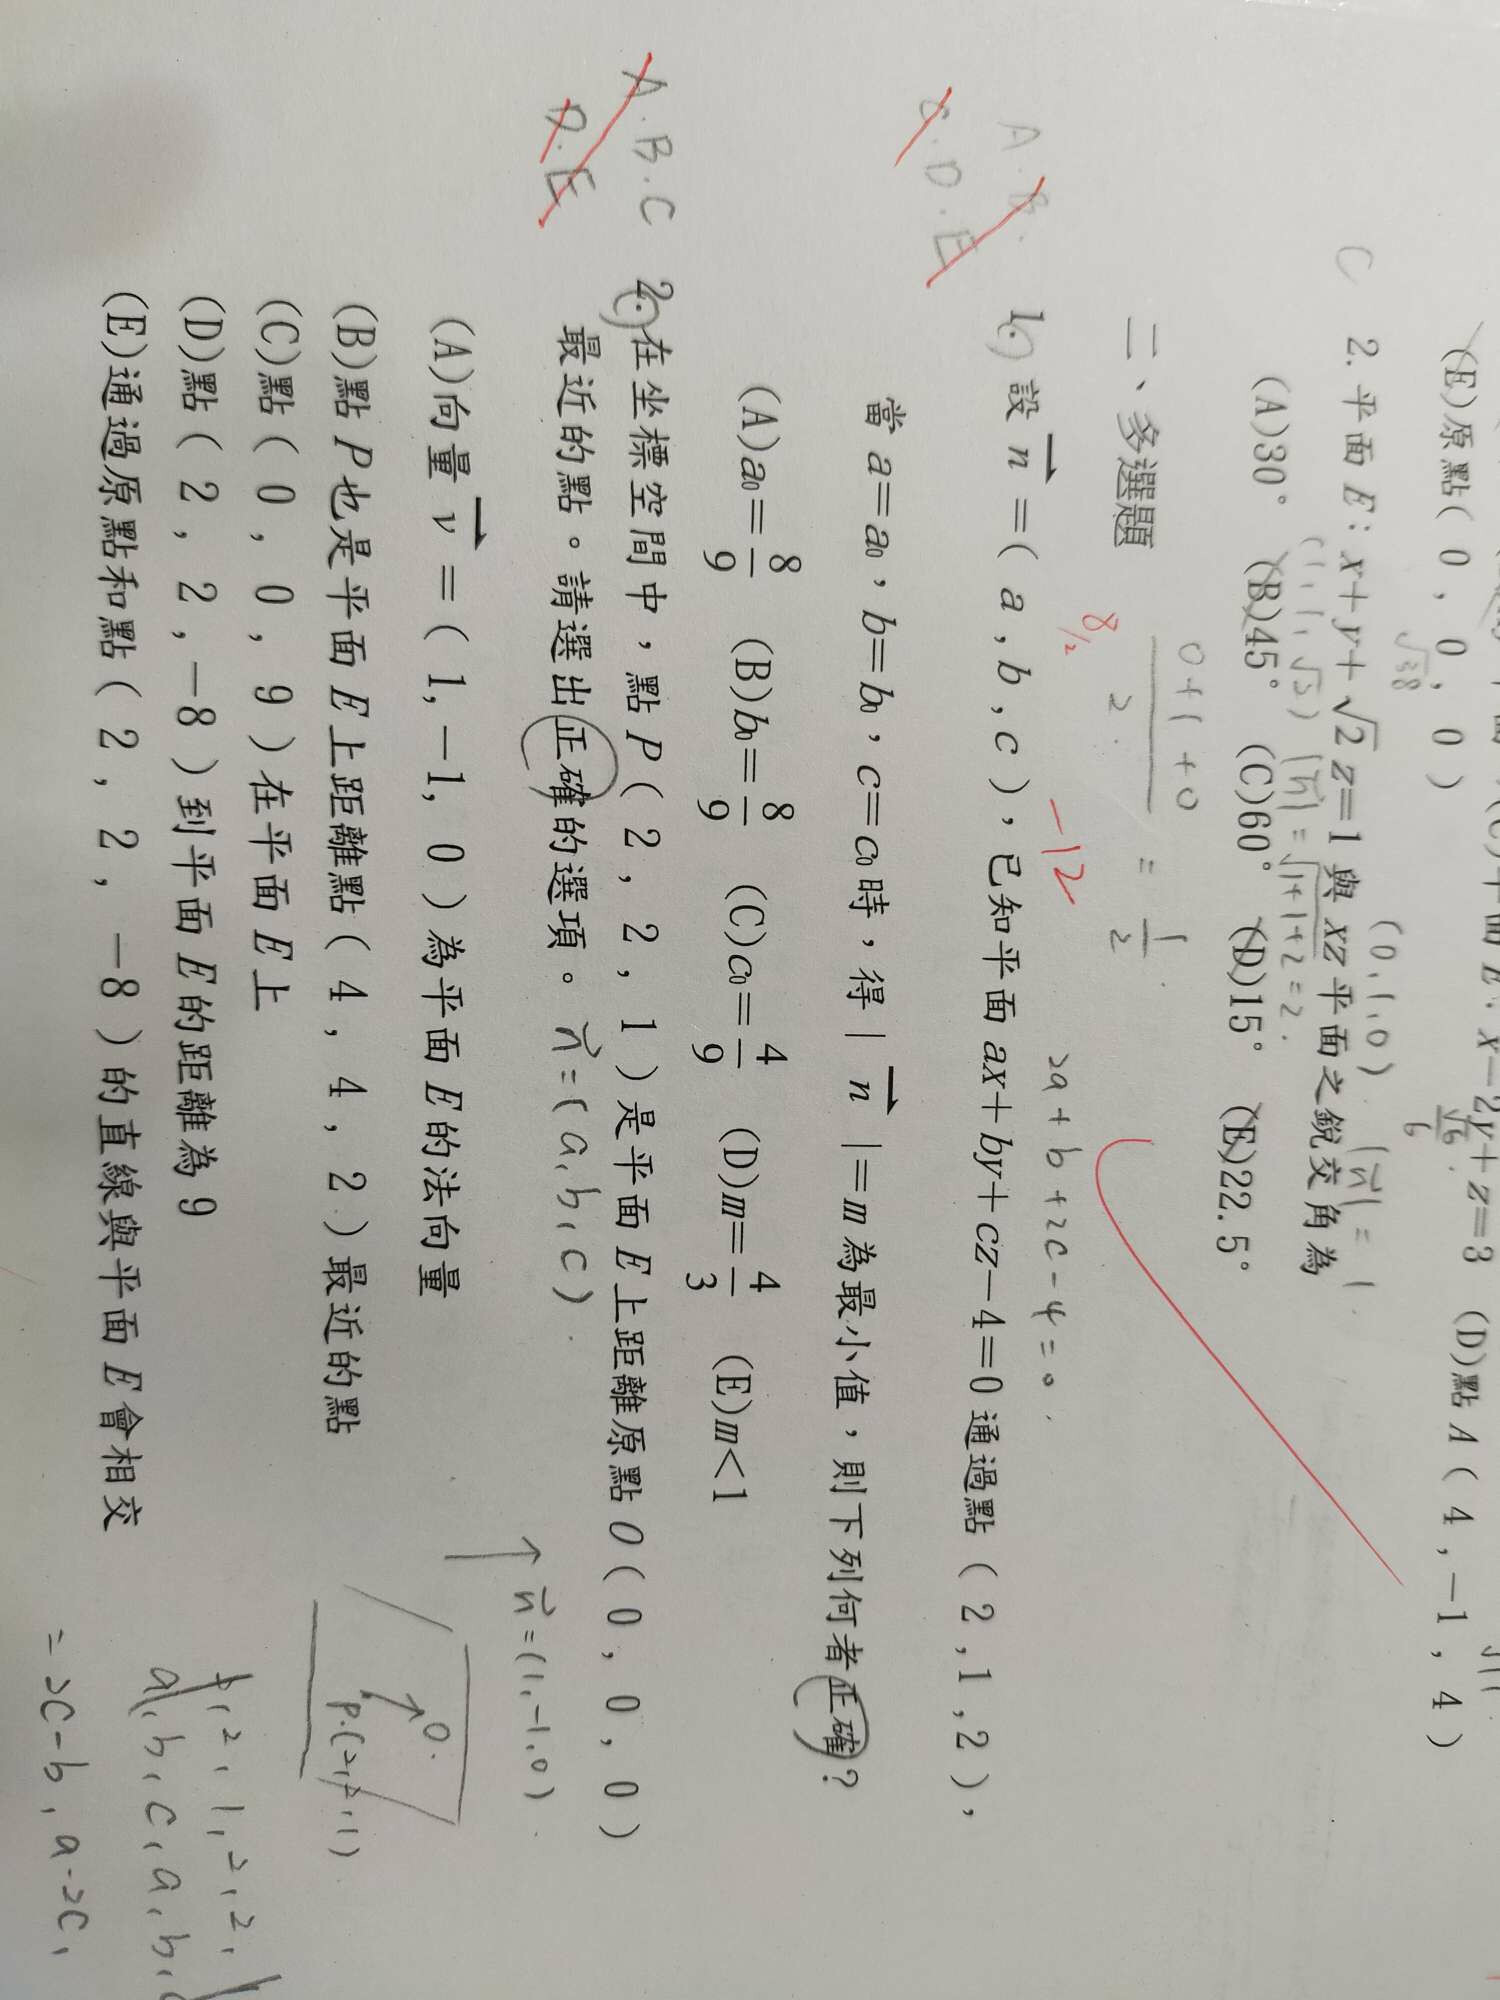 (E)原點( 0 , 0 , 0 )
(D)點 A ( 4 , -1 , 4 )
√38
√6
6
(0,1,0)
|n| = 1
C 2. 平面 E : x+y+√2 z=1 與 xz 平面之銳交角為
|n| = √1+1+2 = 2.
(A)30° (B)45° (C)60° (D)15° (E)22.5°
0+1+0
2
= 1/2
二、多選題
8/2
-12
2a + b + 2c - 4 = 0
A. B.
C. D. E
1. 設 n =( a , b , c ), 已知平面 ax+by+cz-4=0 通過點 ( 2 , 1 , 2 ),
當 a=a0, b=b0, c=c0 時, 得 | n |=m 為最小值, 則下列何者正確?
(A)a0=8/9 (B)b0=8/9 (C)c0=4/9 (D)m=4/3 (E)m<1
A. B. C
D. E
2. 在坐標空間中, 點 P ( 2 , 2 , 1 ) 是平面 E 上距離原點 O ( 0 , 0 , 0 )
最近的點。請選出正確的選項。 n = (a, b, c)
(A)向量 v =( 1, -1, 0 ) 為平面 E 的法向量
n = (1, -1, 0)
(B)點 P 也是平面 E 上距離點 ( 4 , 4 , 2 ) 最近的點
0.
(C)點 ( 0 , 0 , 9 ) 在平面 E 上
(D)點 ( 2 , 2 , -8 ) 到平面 E 的距離為 9
(E)通過原點和點 ( 2 , 2 , -8 ) 的直線與平面 E 會相交
2, 1, 2, 2,
a, b, c, a, b,
= 2c-b, a-2c,